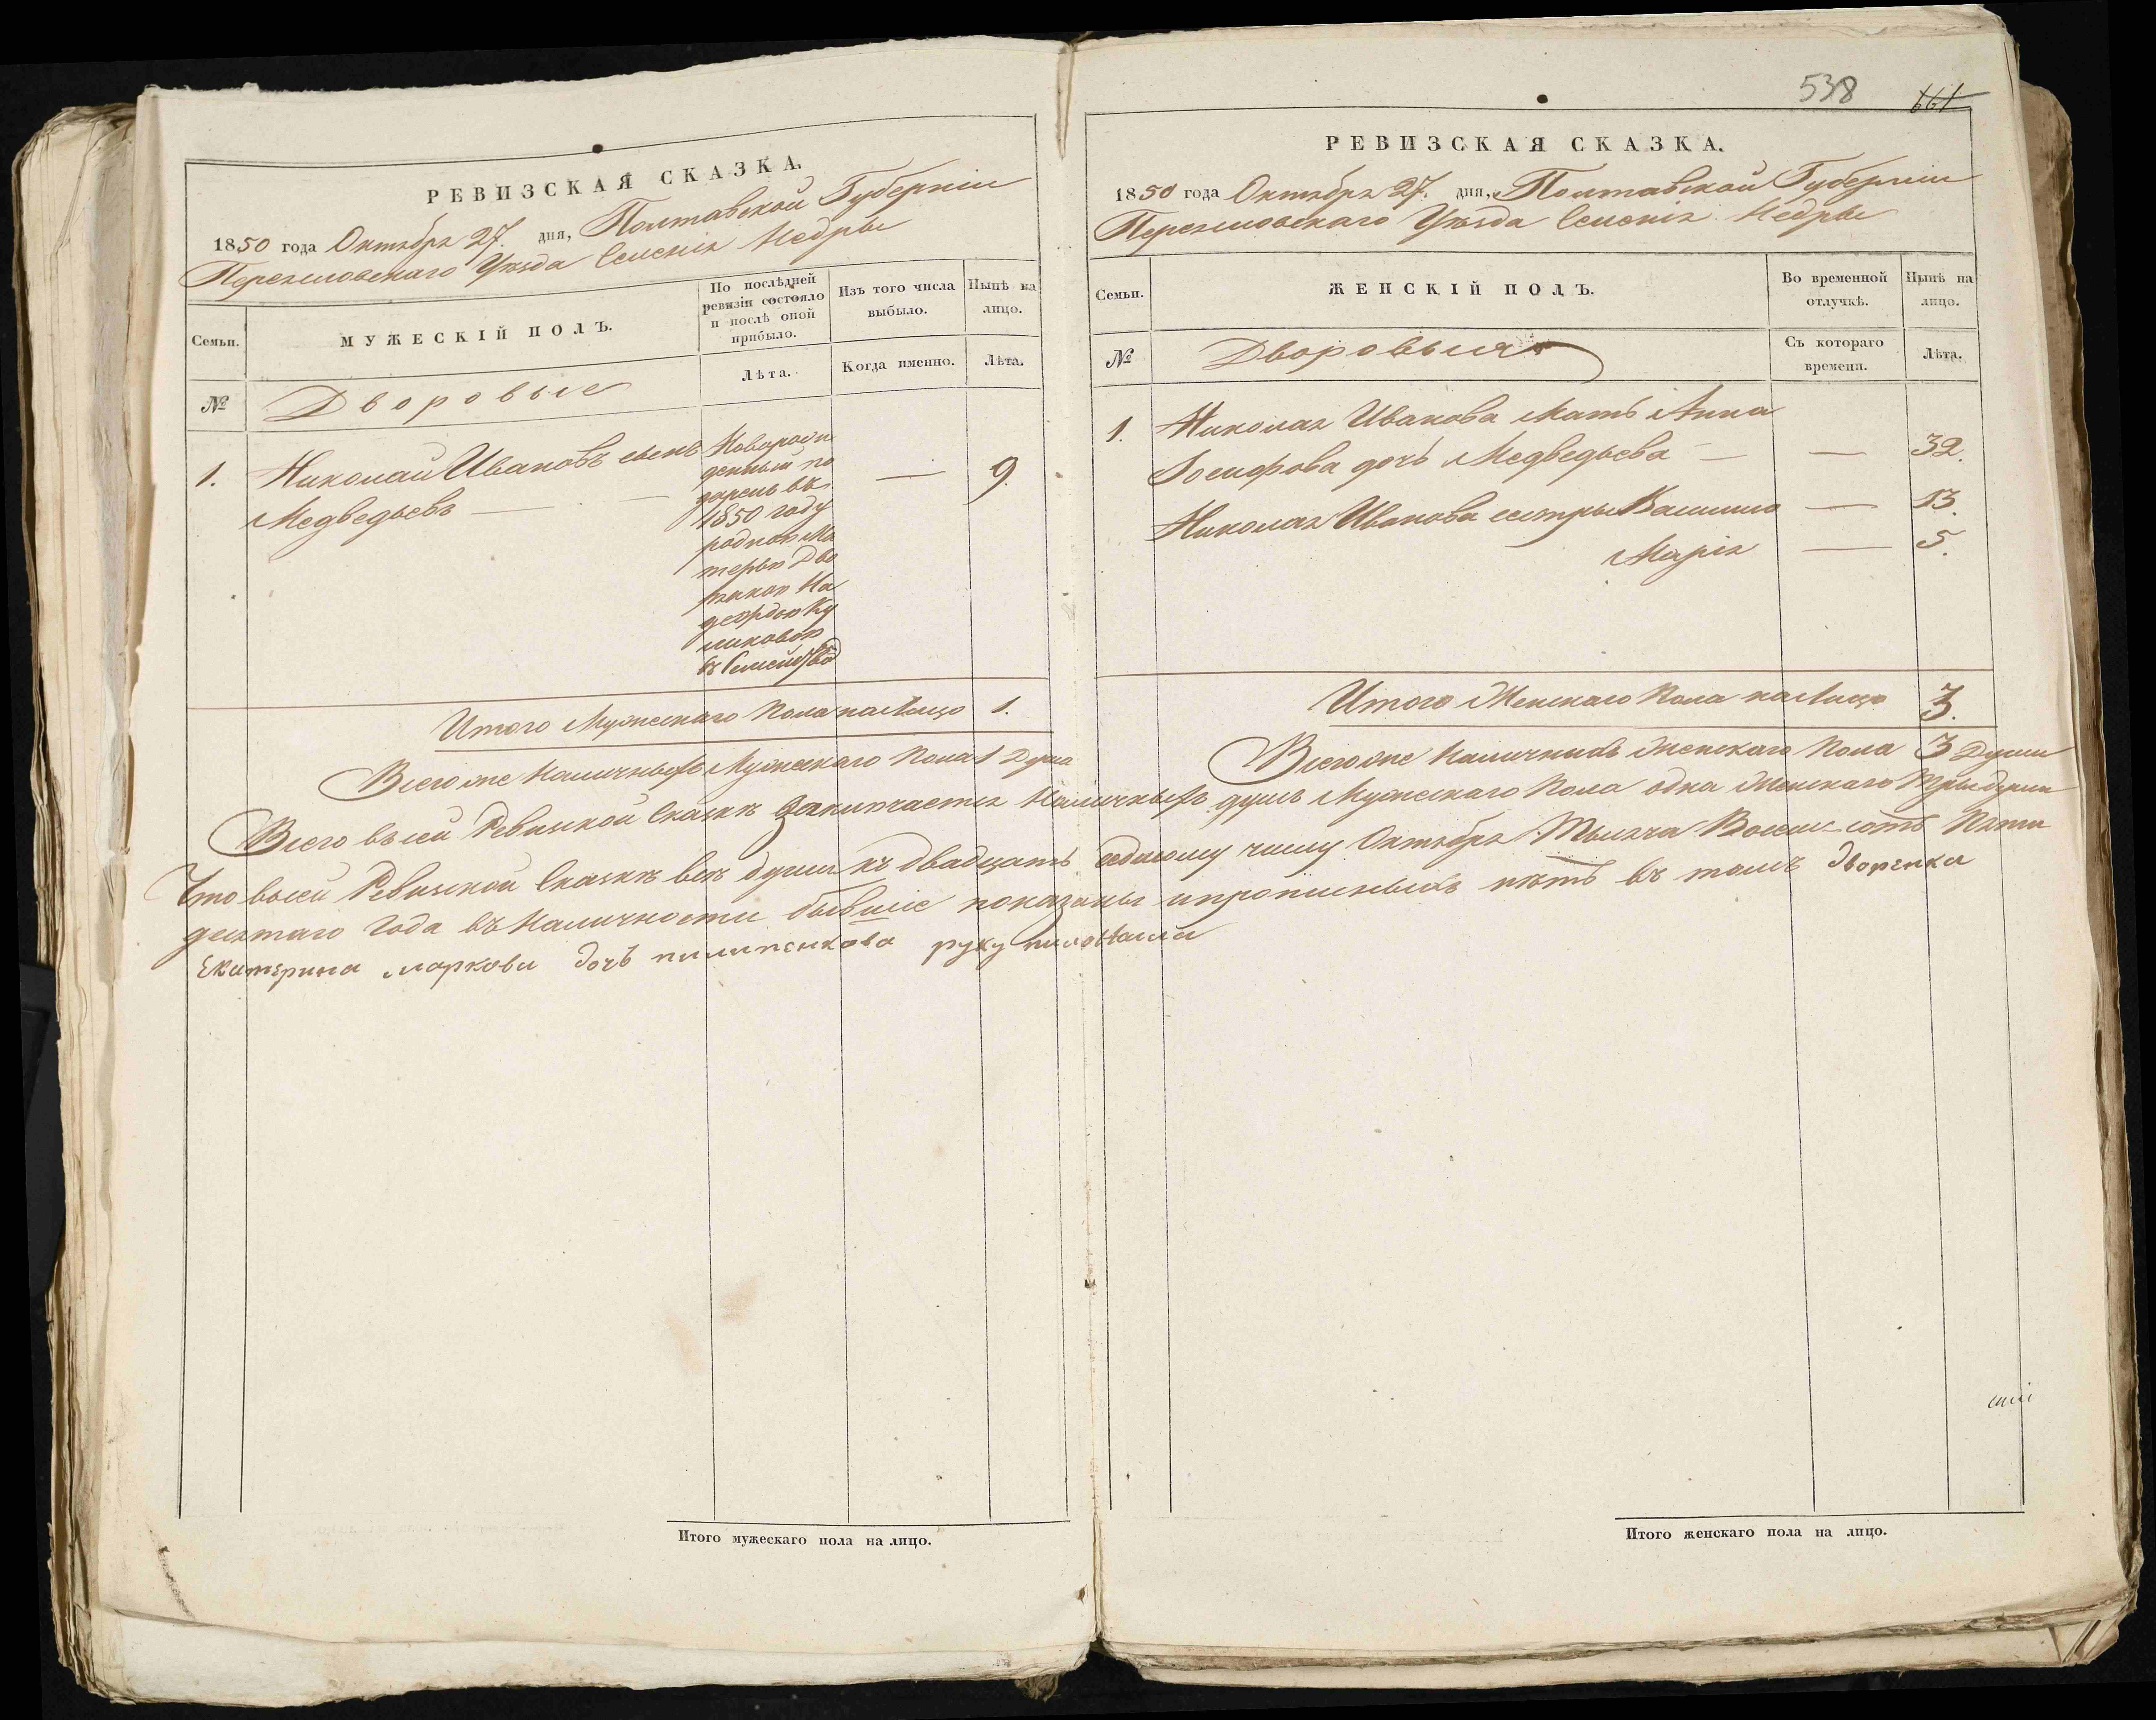 РЕВИЗСКАЯ СКАЗКА.
1850 года Октября 27. дня, Полтавской Губерніи
Переяловскаго Уѣзда Селенія Недры
Семьи.
МУЖЕСКІЙ ПОЛЪ.
По послѣдней ревизіи состояло и послѣ оной прибыло.
Изъ того числа выбыло.
Нынѣ на лицо.
№
Дворовые
Лѣта.
Когда именно.
Лѣта.
1. Николай Ивановъ сынъ Медведьевъ
Новорож
денный по
дарень въ
1850 году
родною Ма
терью Дво
рянкою На
деждою Ку
ликовою
въ Семействѣ
— 9.
Итого Мужескаго Пола на Лицо 1.
Всего же Наличныхъ Мужескаго Пола 1 Душа
538
661
РЕВИЗСКАЯ СКАЗКА.
1850 года Октября 27. дня, Полтавской Губерніи
Переяловскаго Уѣзда Селенія Недры
Семьи.
ЖЕНСКІЙ ПОЛЪ.
Во временной отлучкѣ.
Нынѣ на лицо.
№
Дворовыя
Съ котораго времени.
Лѣта.
1. Николая Иванова Мать Анна
Іосифова дочь Медведьева — — 32.
Николая Иванова сестры — 13.
Марія — 5.
Итого Женскаго Пола на Лицо 3.
Всего же Наличныхъ Женскаго Пола 3 Души
Всего въ сей Ревизской Сказкѣ Заключается Наличныхъ душъ Мужескаго Пола одна Женскаго Три души
Что въ сей Ревизской Сказкѣ всѣ души къ двадцать седьмому числу Октября Тысяча Восемь сотъ Пяти
десятаго Года въ Наличности бывшіе показаны и прописныхъ нѣтъ въ томъ дворянка
Екатерина маркова дочь пилипенкова руку
Итого мужескаго пола на лицо.
Итого женскаго пола на лицо.